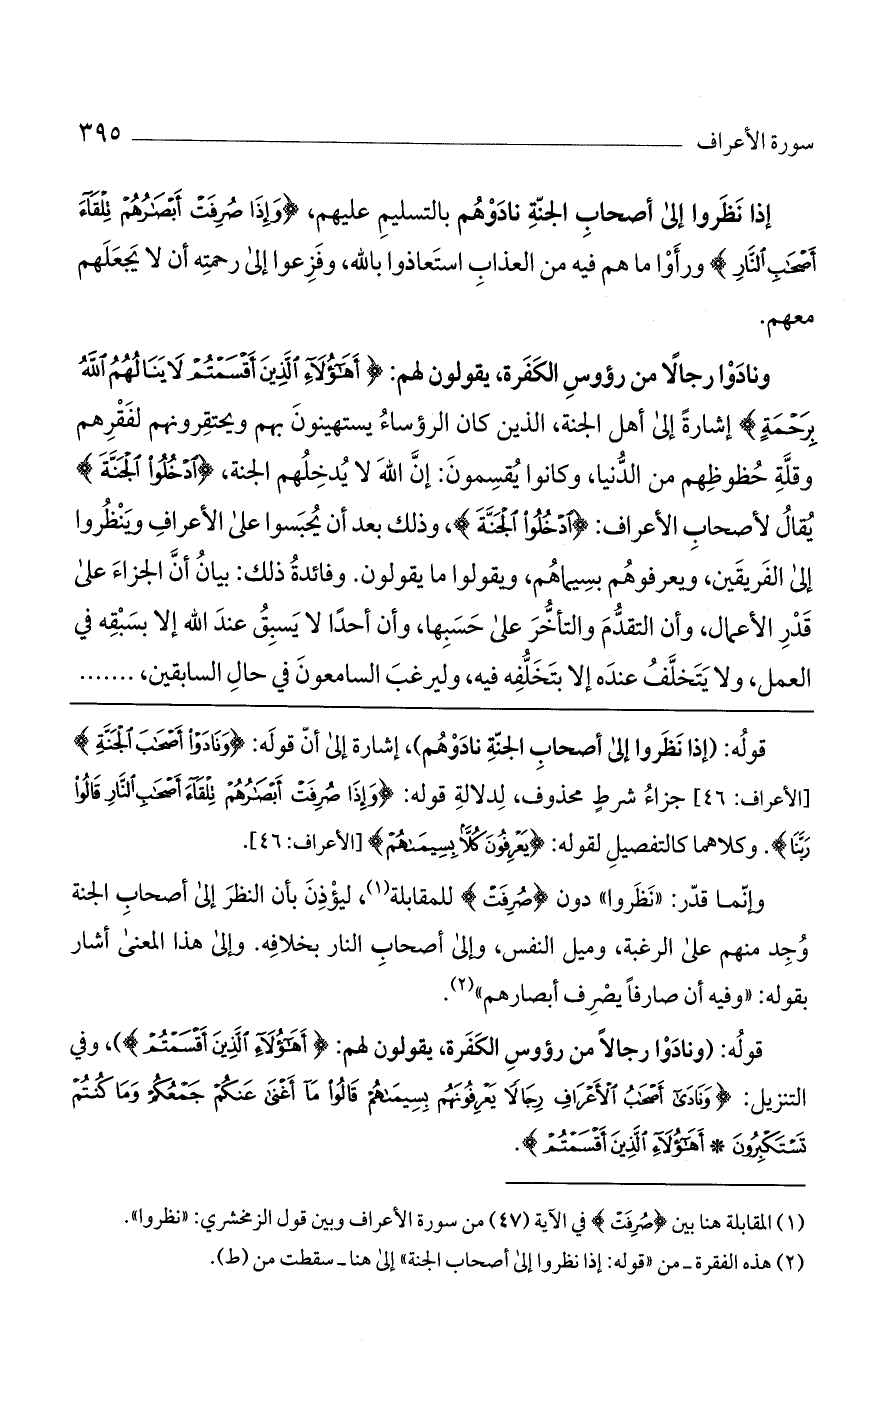 سورة الأعراف ٣٩٥
إذا نَظَروا إلىٰ أصحابِ الجنّةِ نادَوْهُم بالتسليمِ عليهم، ﴿وَإِذَا صُرِفَتْ أَبْصَٰرُهُمْ تِلْقَآءَ
أَصْحَٰبِ ٱلنَّارِ﴾ ورأَوْا ما هم فيه من العذابِ استَعاذوا بالله، وفَزِعوا إلىٰ رحمتِه أن لا يَجعَلَهم
معهم.
ونادَوْا رجالًا من رؤوسِ الكَفَرة، يقولون لهم: ﴿أَهَٰٓؤُلَآءِ ٱلَّذِينَ أَقْسَمْتُمْ لَا يَنَالُهُمُ ٱللَّهُ
بِرَحْمَةٍ﴾ إشارةً إلىٰ أهل الجنة، الذين كان الرؤساءُ يستهينونَ بهم ويحتقِرونهم لفَقْرِهم
وقلَّةِ حُظوظِهم من الدُّنيا، وكانوا يُقسِمونَ: إنَّ اللهَ لا يُدخِلُهم الجنة، ﴿ٱدْخُلُوا۟ ٱلْجَنَّةَ﴾
يُقالُ لأصحابِ الأعراف: ﴿ٱدْخُلُوا۟ ٱلْجَنَّةَ﴾، وذلك بعد أن يُحبَسوا علىٰ الأعرافِ ويَنْظُروا
إلىٰ الفَريقَين، ويعرفوهُم بسِيماهُم، ويقولوا ما يقولون. وفائدةُ ذلك: بيانُ أنَّ الجزاءَ علىٰ
قَدْرِ الأعمال، وأن التقدُّمَ والتأخُّرَ علىٰ حَسَبِها، وأن أحدًا لا يَسبِقُ عندَ الله إلا بسَبْقِه في
العمل، ولا يَتَخلَّفُ عندَه إلا بتَخَلُّفِه فيه، وليرغبَ السامعونَ في حالِ السابقين، .......
قولُه: (إذا نَظَروا إلىٰ أصحابِ الجنّةِ نادَوْهُم)، إشارة إلىٰ أنّ قولَه: ﴿وَنَادَوْا۟ أَصْحَٰبَ ٱلْجَنَّةِ﴾
[الأعراف: ٤٦] جزاءُ شرطٍ محذوف، لِدلالةِ قوله: ﴿وَإِذَا صُرِفَتْ أَبْصَٰرُهُمْ تِلْقَآءَ أَصْحَٰبِ ٱلنَّارِ قَالُوا۟
رَبَّنَا﴾. وكلاهما كالتفصيلِ لقوله: ﴿يَعْرِفُونَ كُلًّۢا بِسِيمَىٰهُمْ﴾ [الأعراف: ٤٦].
وإنّما قدّر: «نَظَروا» دون ﴿صُرِفَتْ﴾ للمقابلة(١)، ليؤْذِنَ بأن النظرَ إلىٰ أصحابِ الجنة
وُجِد منهم علىٰ الرغبة، وميل النفس، وإلىٰ أصحابِ النار بخلافِه. وإلىٰ هذا المعنىٰ أشار
بقوله: «وفيه أن صارفاً يصْرِف أبصارهم»(٢).
قولُه: (ونادَوْا رجالاً من رؤوسِ الكَفَرة، يقولون لهم: ﴿أَهَٰٓؤُلَآءِ ٱلَّذِينَ أَقْسَمْتُمْ﴾)، وفي
التنزيل: ﴿وَنَادَىٰٓ أَصْحَٰبُ ٱلْأَعْرَافِ رِجَالًا يَعْرِفُونَهُم بِسِيمَىٰهُمْ قَالُوا۟ مَآ أَغْنَىٰ عَنكُمْ جَمْعُكُمْ وَمَا كُنتُمْ
تَسْتَكْبِرُونَ * أَهَٰٓؤُلَآءِ ٱلَّذِينَ أَقْسَمْتُمْ﴾.
(١) المقابلة هنا بين ﴿صُرِفَتْ﴾ في الآية (٤٧) من سورة الأعراف وبين قول الزمخشري: «نظروا».
(٢) هذه الفقرة ـ من «قوله: إذا نظروا إلىٰ أصحاب الجنة» إلىٰ هنا ـ سقطت من (ط).